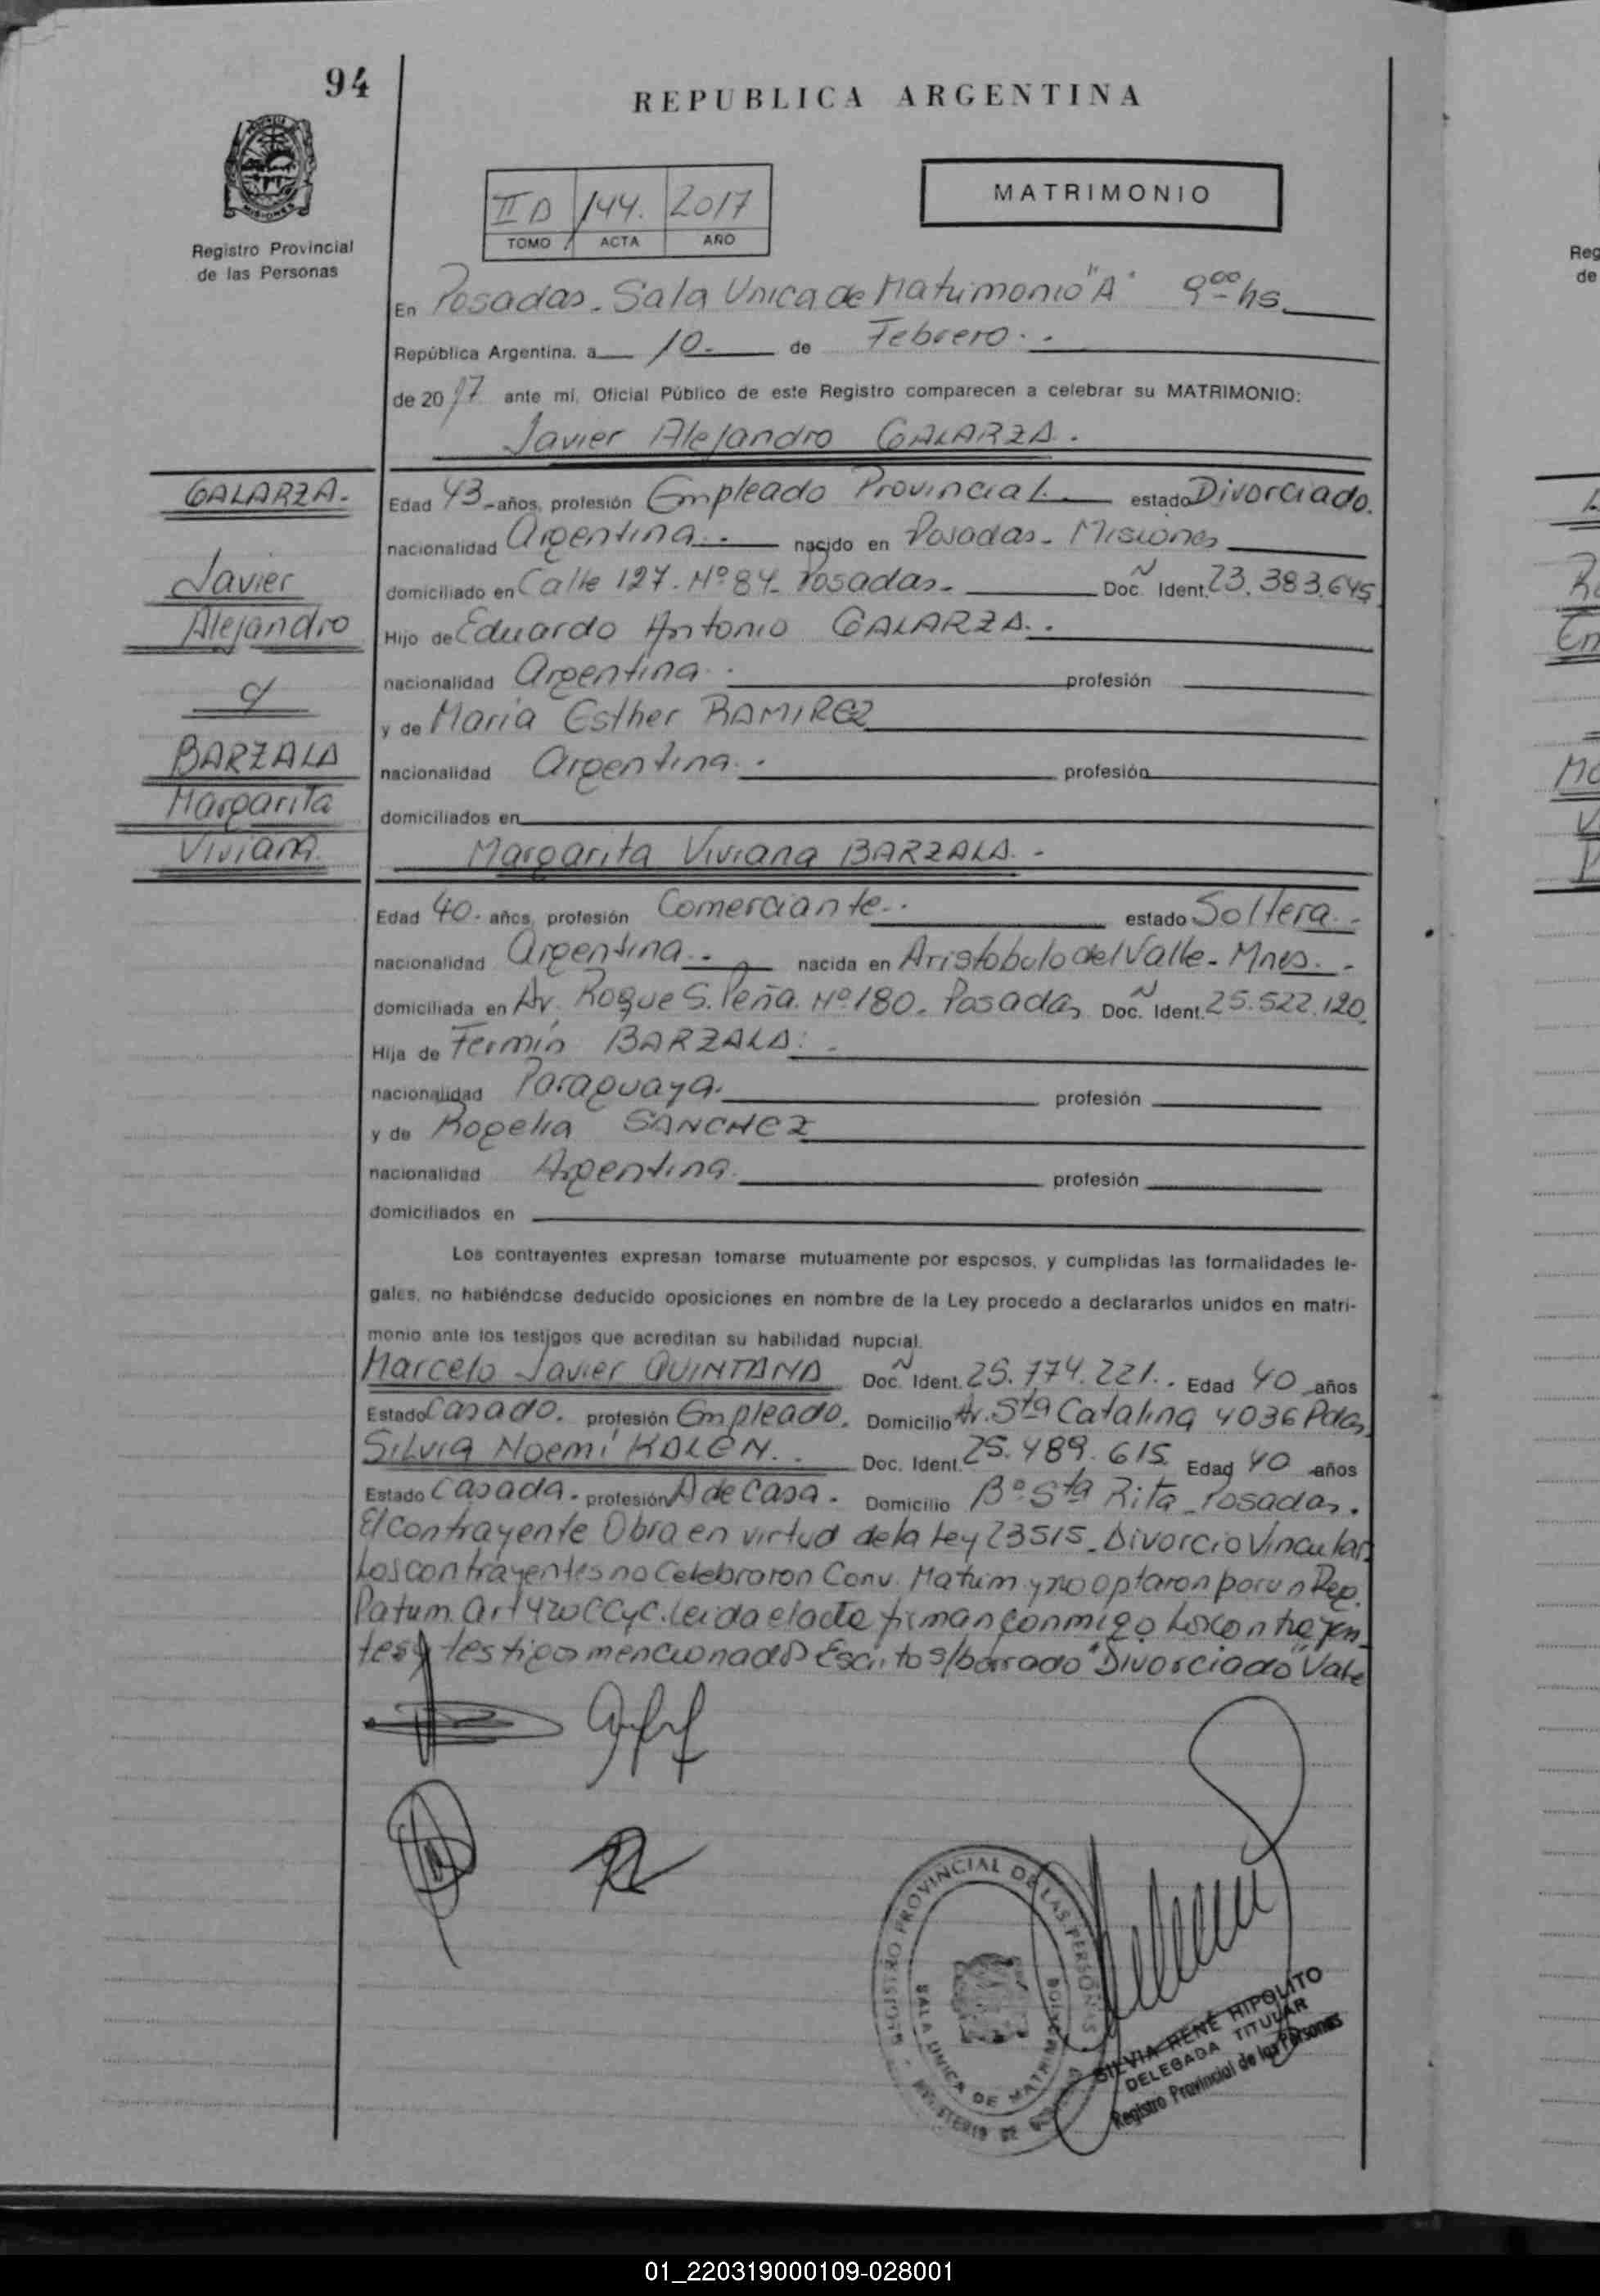 94
REPUBLICA ARGENTINA
MISIONES
Registro Provincial
de las Personas
II D 144. 2017
TOMO ACTA AÑO
MATRIMONIO
En Posadas. Sala Unica de Matrimonio "A" 9 00 hs
República Argentina, a 10. de Febrero. .
de 2017 ante mí, Oficial Público de este Registro comparecen a celebrar su MATRIMONIO:
Javier Alejandro GALARZA.
GALARZA.
Javier
Alejandro
c/
BARZALA
Margarita
Viviana
Edad 43 años, profesión Empleado Provincial. estado Divorciado.
nacionalidad Argentina. . nacido en Posadas. Misiones
domiciliado en Calle 127. Nº 84. Posadas. Doc. N Ident. 23.383.645
Hijo de Eduardo Antonio GALARZA. .
nacionalidad Argentina. . profesión
y de María Esther RAMIREZ
nacionalidad Argentina. . profesión
domiciliados en
Margarita Viviana BARZALA. -
Edad 40. años, profesión Comerciante. . estado Soltera. .
nacionalidad Argentina. . nacida en Aristobulo del Valle. Mnes. .
domiciliada en Av. Roque S. Peña. Nº 180. Posadas Doc. N Ident. 25.522.120.
Hija de Fermín BARZALA: .
nacionalidad Paraguaya. profesión
y de Rogelia SANCHEZ
nacionalidad Argentina. profesión
domiciliados en
Los contrayentes expresan tomarse mutuamente por esposos, y cumplidas las formalidades le-
gales, no habiéndose deducido oposiciones en nombre de la Ley procedo a declararlos unidos en matri-
monio ante los testigos que acreditan su habilidad nupcial.
Marcelo Javier QUINTANA Doc. N Ident. 25.774.221. . Edad 40 años
Estado Casado. profesión Empleado. Domicilio Av. Sta Catalina 4036 Pdas
Silvia Noemí KALEN. . Doc. Ident. 25.489.615. Edad 40 años
Estado Casada. profesión A de Casa. Domicilio Bº Sta Rita. Posadas.
El contrayente Obra en virtud de la Ley 23515. Divorcio Vincular.
Los contrayentes no Celebraron Conv. Matrim. y no optaron por un Reg.
Patrim. art 420 CCyC. Leida el acta firman conmigo Los contrayen
tes y testigos mencionados Escrito s/borrado "Divorciado" Vale
REGISTRO PROVINCIAL DE LAS PERSONAS
SALA UNICA DE MATRIMONIO
SILVIA RENÉ HIPOLITO
DELEGADA TITULAR
Registro Provincial de las Personas
01_220319000109-028001